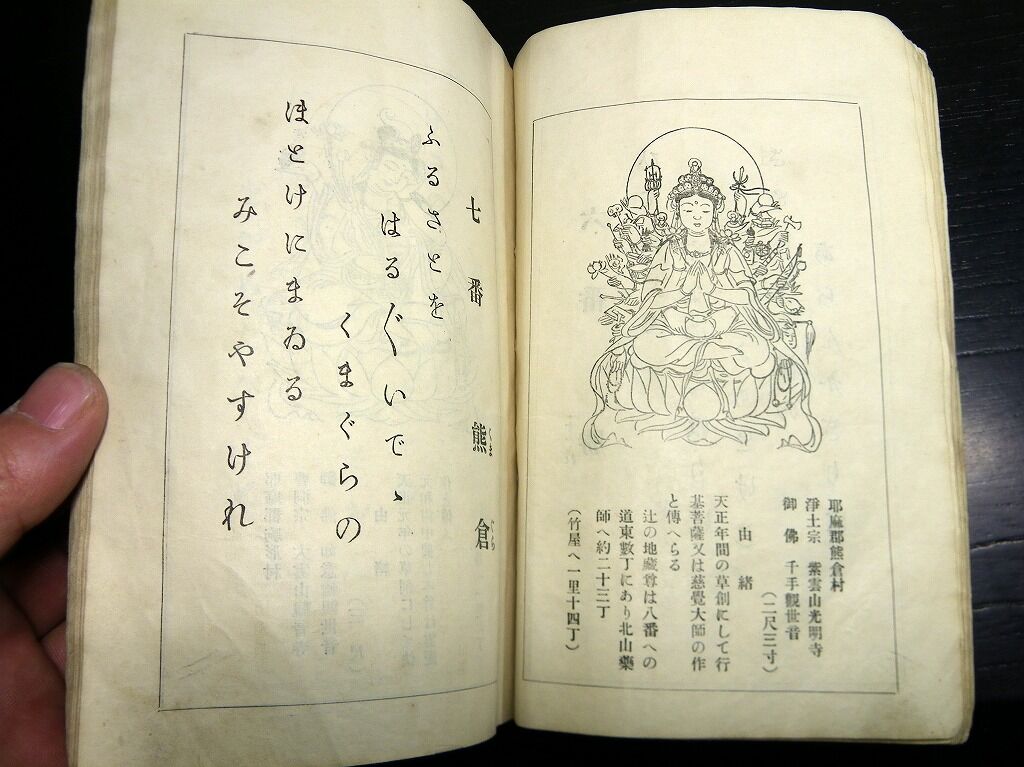 耶麻郡熊倉村
淨土宗　紫雲山光明寺
御佛　千手觀世音
（二尺三寸）
由緒
天正年間の草創にして行
基菩薩又は慈覺大師の作
と傳へらる
辻の地藏尊は八番への
道東數丁にあり北山藥
師へ約二十三丁
（竹屋へ一里十四丁）
七番　熊倉
くまぐら
ふるさとを
はる〴〵いでゝ
くまぐらの
ほとけにまゐる
みこそやすけれ